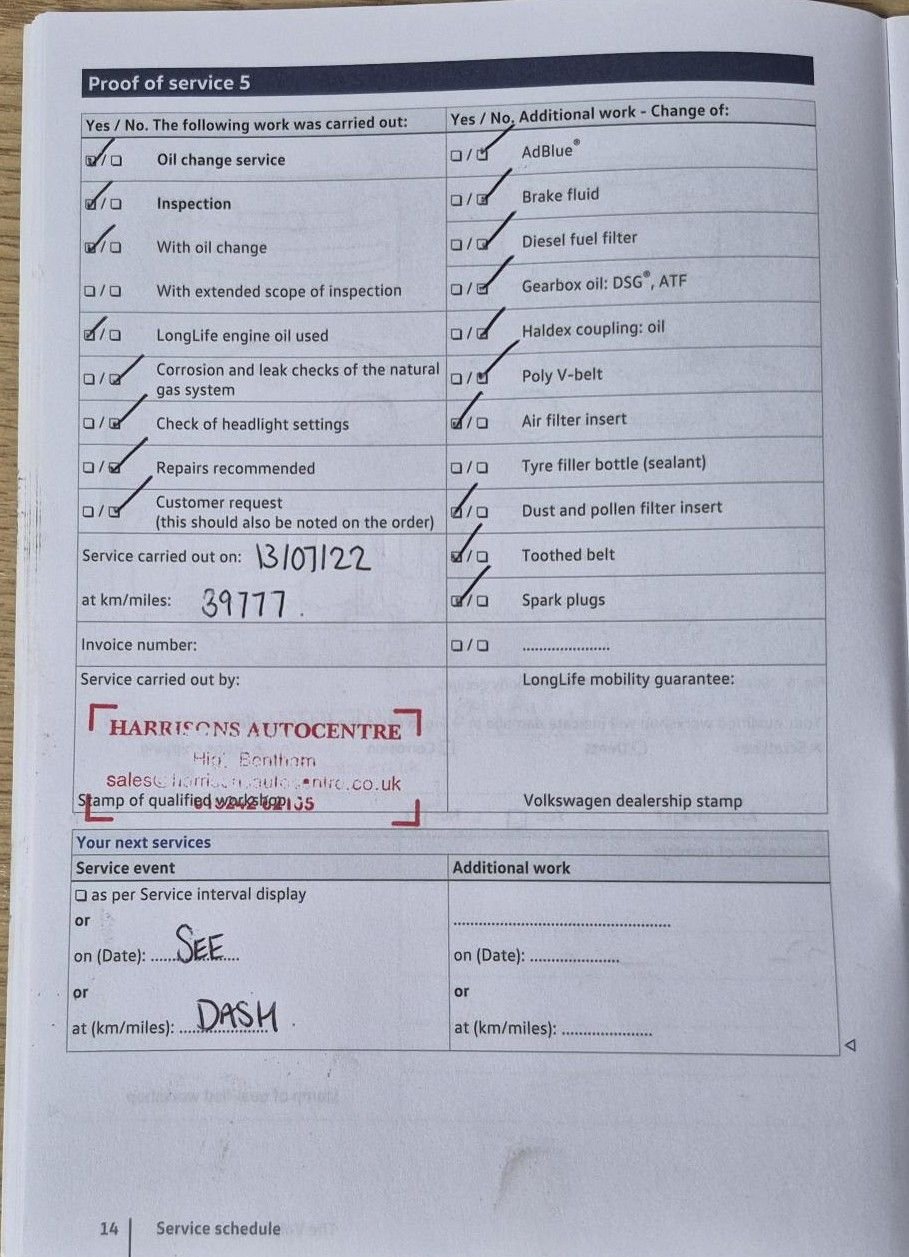 Proof of service 5
Yes / No. The following work was carried out:
☑/☐ Oil change service
☑/☐ Inspection
☑/☐ With oil change
☐/☐ With extended scope of inspection
☑/☐ LongLife engine oil used
☐/☑ Corrosion and leak checks of the natural
gas system
☐/☑ Check of headlight settings
☐/☑ Repairs recommended
☐/☑ Customer request
(this should also be noted on the order)
Service carried out on: 13/07/22
at km/miles: 39777.
Invoice number:
Service carried out by:
HARRISONS AUTOCENTRE
High Bentham
sales@harrisonsautocentre.co.uk
Stamp of qualified workshop
Yes / No. Additional work - Change of:
☐/☑ AdBlue®
☐/☑ Brake fluid
☐/☑ Diesel fuel filter
☐/☑ Gearbox oil: DSG®, ATF
☐/☑ Haldex coupling: oil
☐/☑ Poly V-belt
☑/☐ Air filter insert
☐/☐ Tyre filler bottle (sealant)
☑/☐ Dust and pollen filter insert
☑/☐ Toothed belt
☑/☐ Spark plugs
☐/☐ ......................
LongLife mobility guarantee:
Volkswagen dealership stamp
Your next services
Service event
☐ as per Service interval display
or
on (Date): SEE
or
at (km/miles): DASH.
Additional work
......................
on (Date): ......................
or
at (km/miles): ......................
14 Service schedule